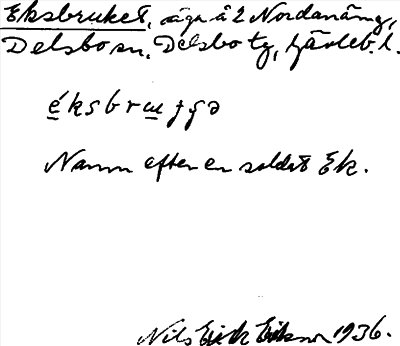 Eksbruket, äga å 2 Nordanäng,
Delsbo sn, Delsbo tg, Gävleb. l.
Namn efter en soldat Ek.
Nils Erik Eriksson 1936.